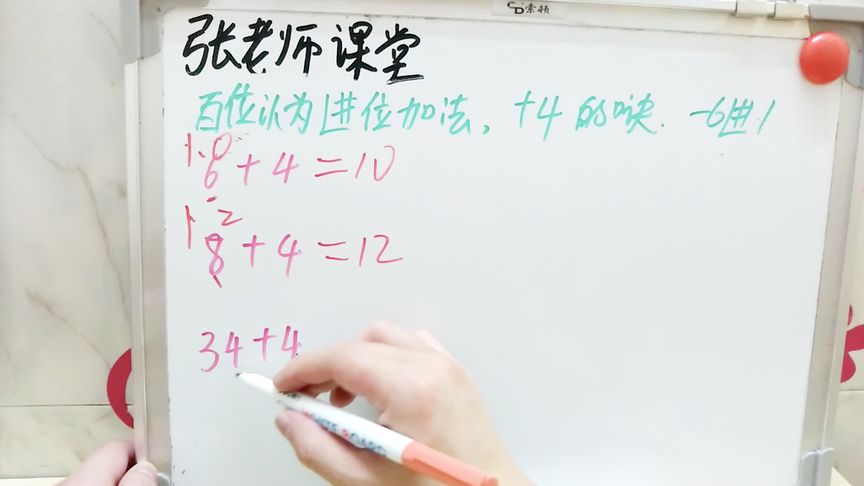 索顿
张老师课堂
百位认为进位加法，+4的口诀. -6进1
10
6+4=10
12
8+4=12
34+4